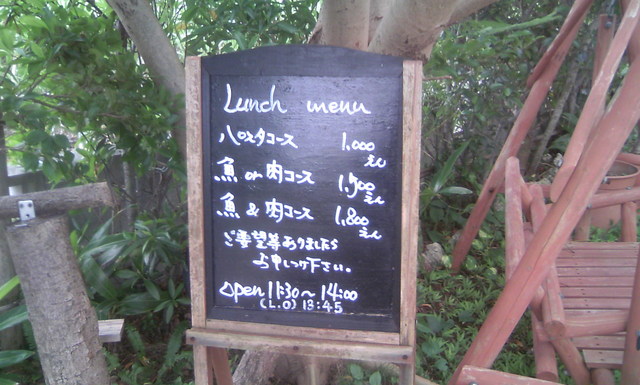 Lunch menu
パスタコース 1,000えん
魚or肉コース 1,500えん
魚&肉コース 1,800えん
ご要望等ありましたら
お申しつけ下さい。
Open 11:30~14:00
(L.O) 13:45